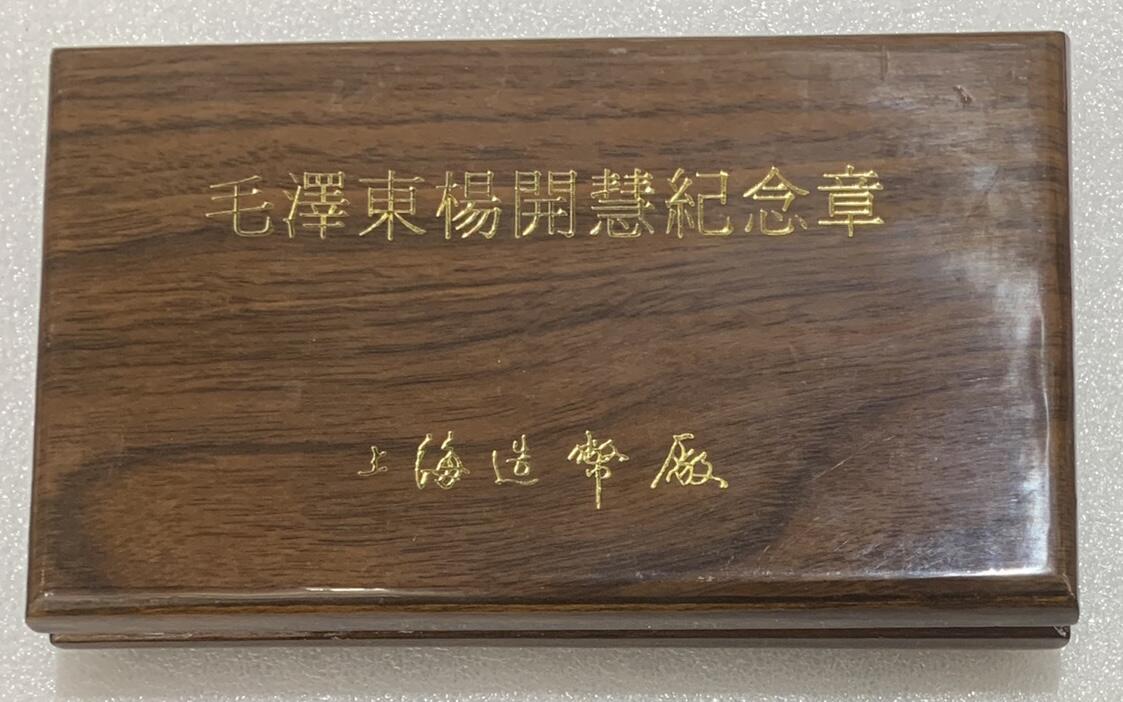 毛澤東楊開慧紀念章
上海造幣廠